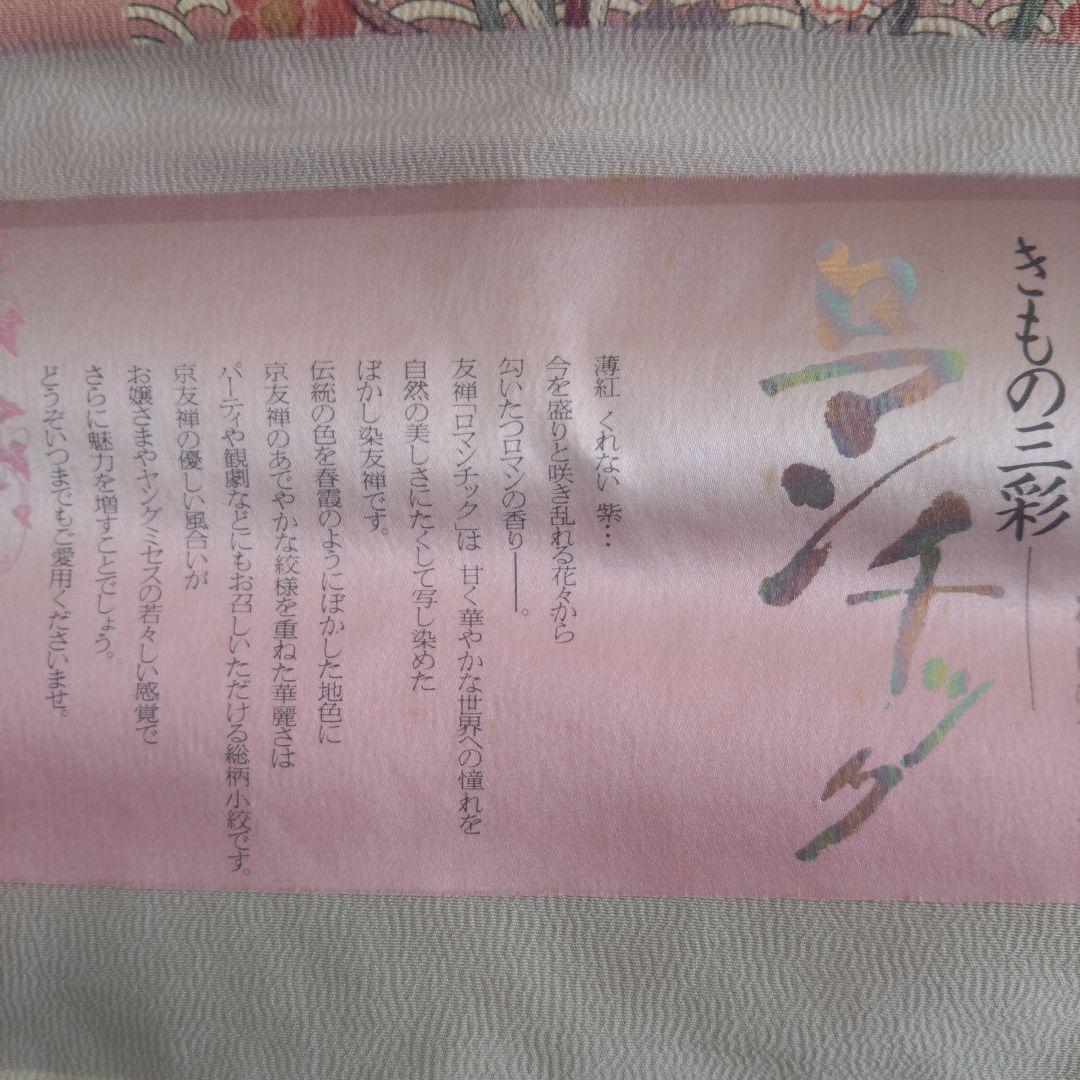 きもの三彩
ロマンチック
薄紅 くれない 紫…
今を盛りと咲き乱れる花々から
匂いたつロマンの香り――。
友禅「ロマンチック」は 甘く華やかな世界への憧れを
自然の美しさにたくして写し染めた
ぼかし染友禅です。
伝統の色を春霞のようにぼかした地色に
京友禅のあでやかな紋様を重ねた華麗さは
パーティや観劇などにもお召しいただける総柄小紋です。
京友禅の優しい風合いが
お嬢さまやヤングミセスの若々しい感覚で
さらに魅力を増すことでしょう。
どうぞいつまでもご愛用くださいませ。